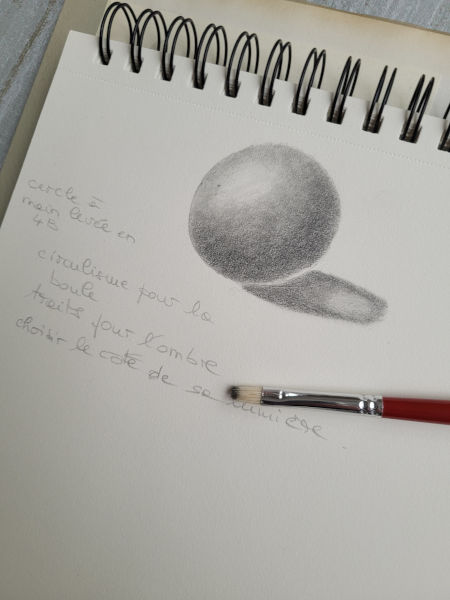 cercle à
main levée en
4B
circulisme pour la
boule
traits pour l'ombre
choisir le coté de sa lumière.